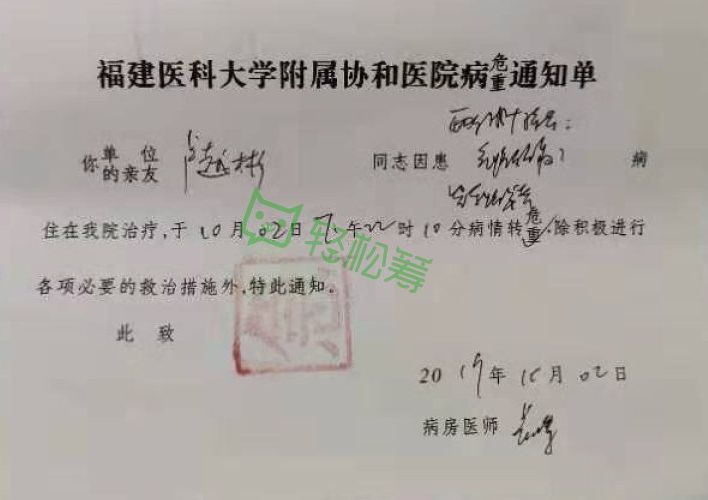 福建医科大学附属协和医院病危重通知单
你单位的亲友 越彬 同志因患 病
住在我院治疗,于10月02日下午22时10分病情转危重,除积极进行
各项必要的救治措施外,特此通知。
此 致
2019年10月02日
病房医师
轻松筹